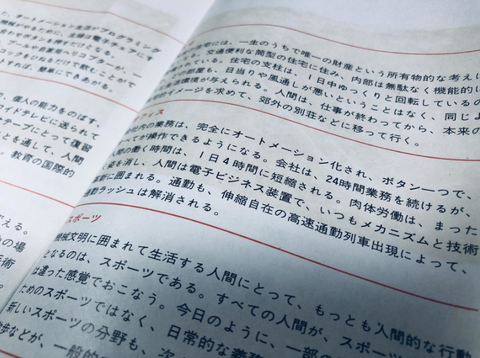 オートメーション生活やプログラミング
個人の能力をのばす、
イドテレビに送られて
テープにとって復習
とを通して、人間
教育の国際的
住宅には、一生のうちで唯一の財産という所有物的な考えに
で交通便利な筒型の住宅に住み、内部は無駄なく機能的に
ている。住宅の支柱は、1日中ゆっくりと回転しているの
部屋も、日当りや風通しが悪いということはなく、同じよ
境が与えられる。人間は、仕事が終わってから、本来の
イメージを求めて、郊外の別荘などに移って行く。
フィス
社内の業務は、完全にオートメーション化され、ボタン一つで、
てが操作できるようになる。会社は、24時間業務を続けるが、
の働く時間は、1日4時間に短縮される。肉体労働は、まった
を消し、人間は電子ビジネス装置で、いつもメカニズムと技術
に囲まれる。通勤も、伸縮自在の高速通勤列車出現によって、
勤ラッシュは解消される。
スポーツ
機械文明に囲まれて生活する人間にとって、もっとも人間的な行動
となるのは、スポーツである。すべての人間が、スポーツ
は違った感覚でおこなう。今日のように、一部の
ためのスポーツではなく、日常的な義務
新しいスポーツの分野も、次
歩などが、一般的